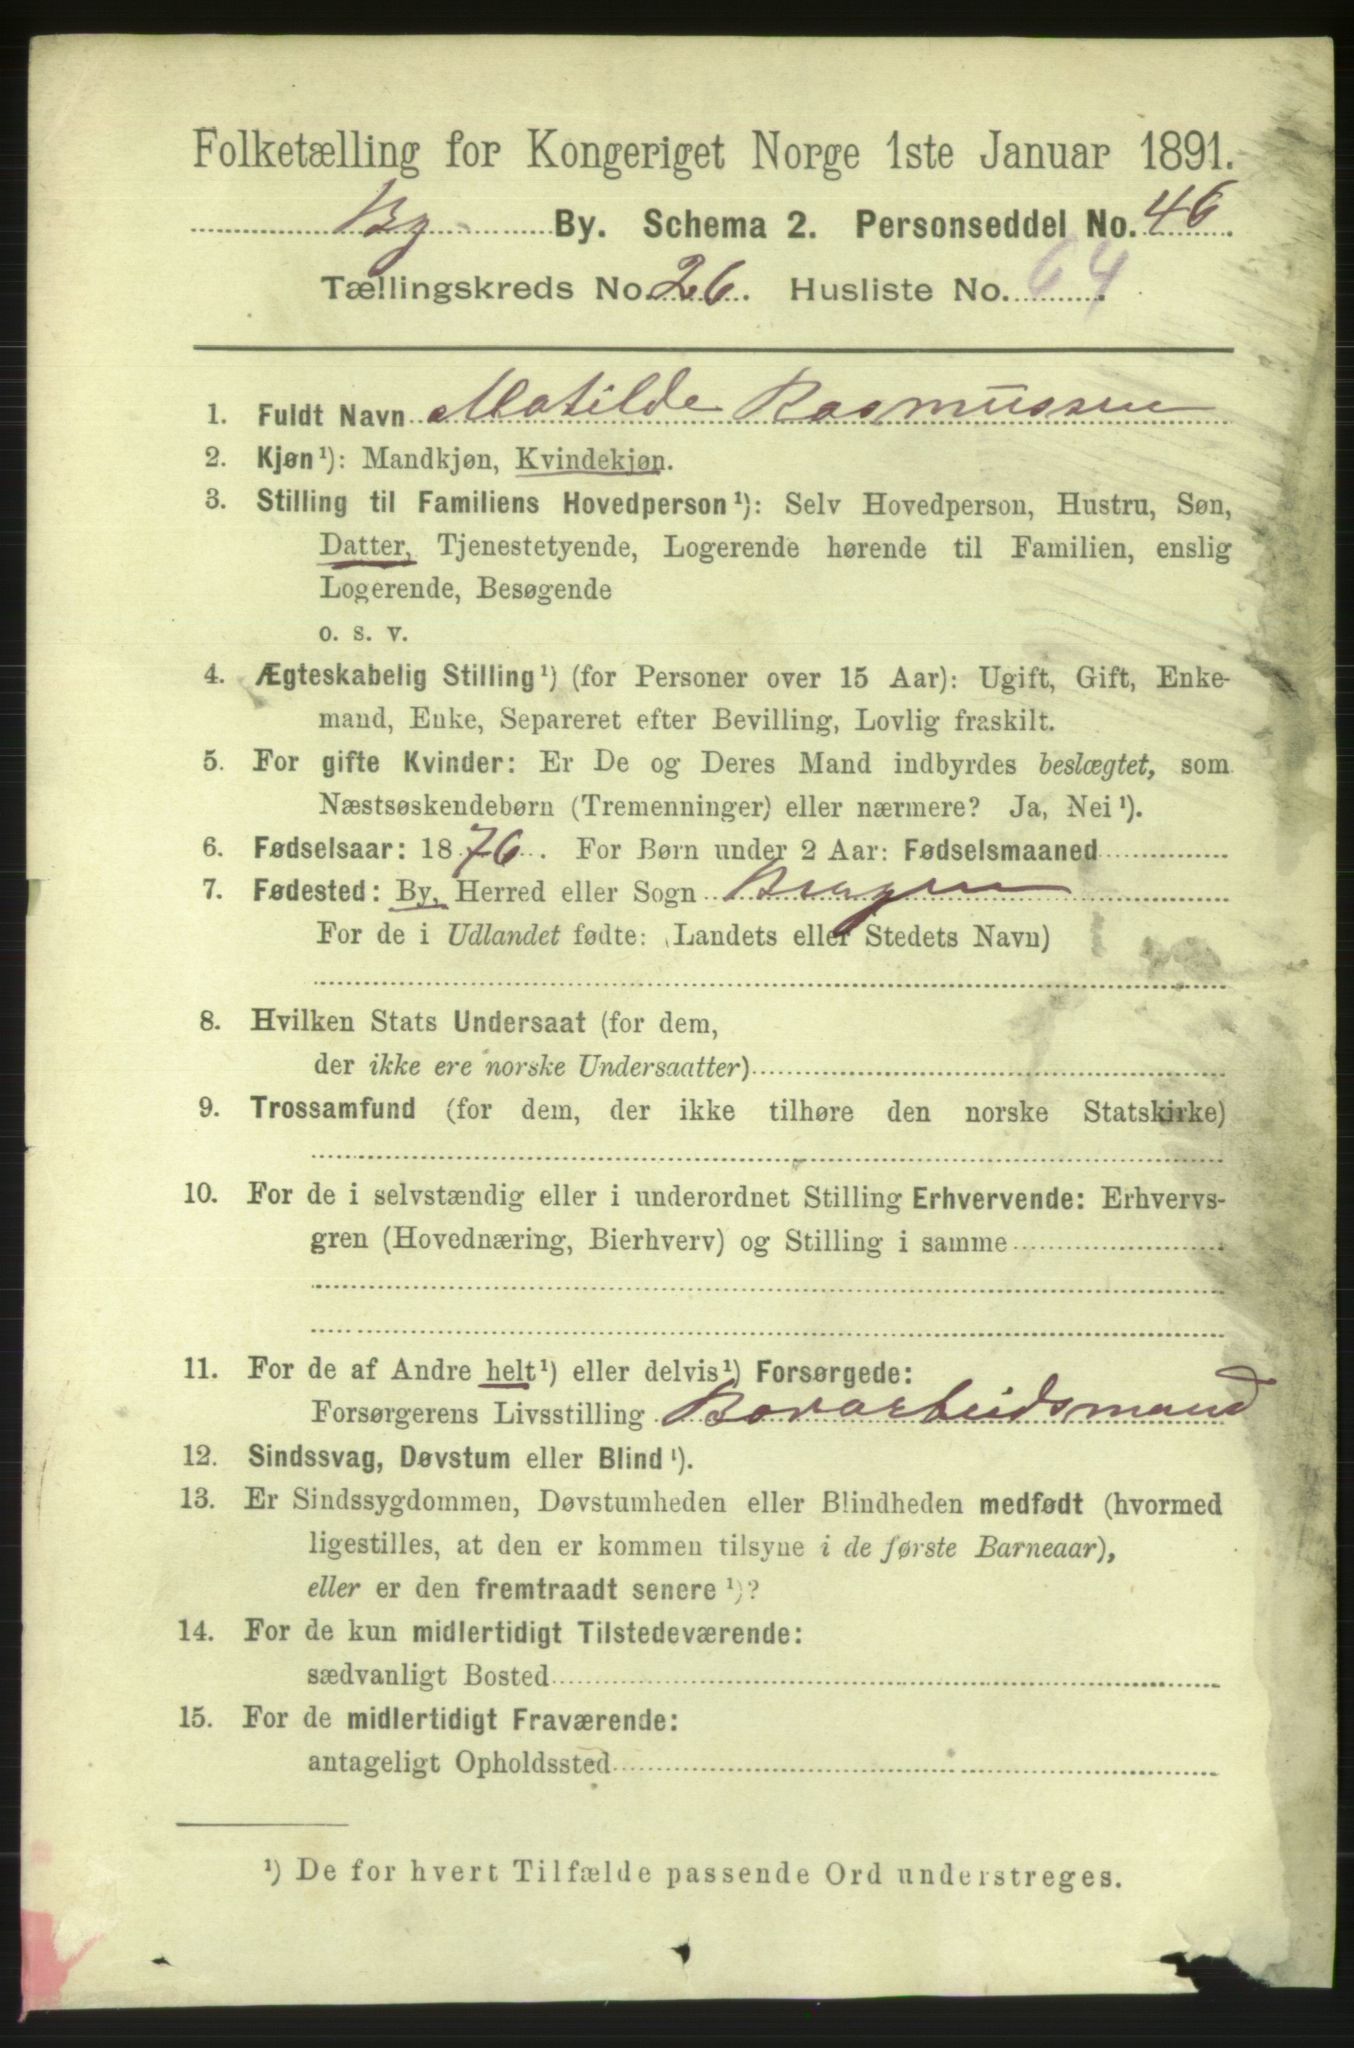 Folketælling for Kongeriget Norge 1ste Januar 1891.
By By. Schema 2. Personseddel No. 46.
Tællingskreds No. 26. Husliste No. 64.
1. Fuldt Navn Matilde Rasmussen
2. Kjøn ¹): Mandkjøn, Kvindekjøn.
3. Stilling til Familiens Hovedperson ¹): Selv Hovedperson, Hustru, Søn,
Datter, Tjenestetyende, Logerende hørende til Familien, enslig
Logerende, Besøgende
o. s. v.
4. Ægteskabelig Stilling ¹) (for Personer over 15 Aar): Ugift, Gift, Enke-
mand, Enke, Separeret efter Bevilling, Lovlig fraskilt.
5. For gifte Kvinder: Er De og Deres Mand indbyrdes beslægtet, som
Næstsøskendebørn (Tremenninger) eller nærmere? Ja, Nei ¹).
6. Fødselsaar: 1876. For Børn under 2 Aar: Fødselsmaaned
7. Fødested: By, Herred eller Sogn
For de i Udlandet fødte: Landets eller Stedets Navn)
8. Hvilken Stats Undersaat (for dem,
der ikke ere norske Undersaatter)
9. Trossamfund (for dem, der ikke tilhøre den norske Statskirke)
10. For de i selvstændig eller i underordnet Stilling Erhvervende: Erhvervs-
gren (Hovednæring, Bierhverv) og Stilling i samme
11. For de af Andre helt ¹) eller delvis ¹) Forsørgede:
Forsørgerens Livsstilling Bovarbeidsmand
12. Sindssvag, Døvstum eller Blind ¹).
13. Er Sindssygdommen, Døvstumheden eller Blindheden medfødt (hvormed
ligestilles, at den er kommen tilsyne i de første Barneaar),
eller er den fremtraadt senere ¹)?
14. For de kun midlertidigt Tilstedeværende:
sædvanligt Bosted
15. For de midlertidigt Fraværende:
antageligt Opholdssted
¹) De for hvert Tilfælde passende Ord understreges.